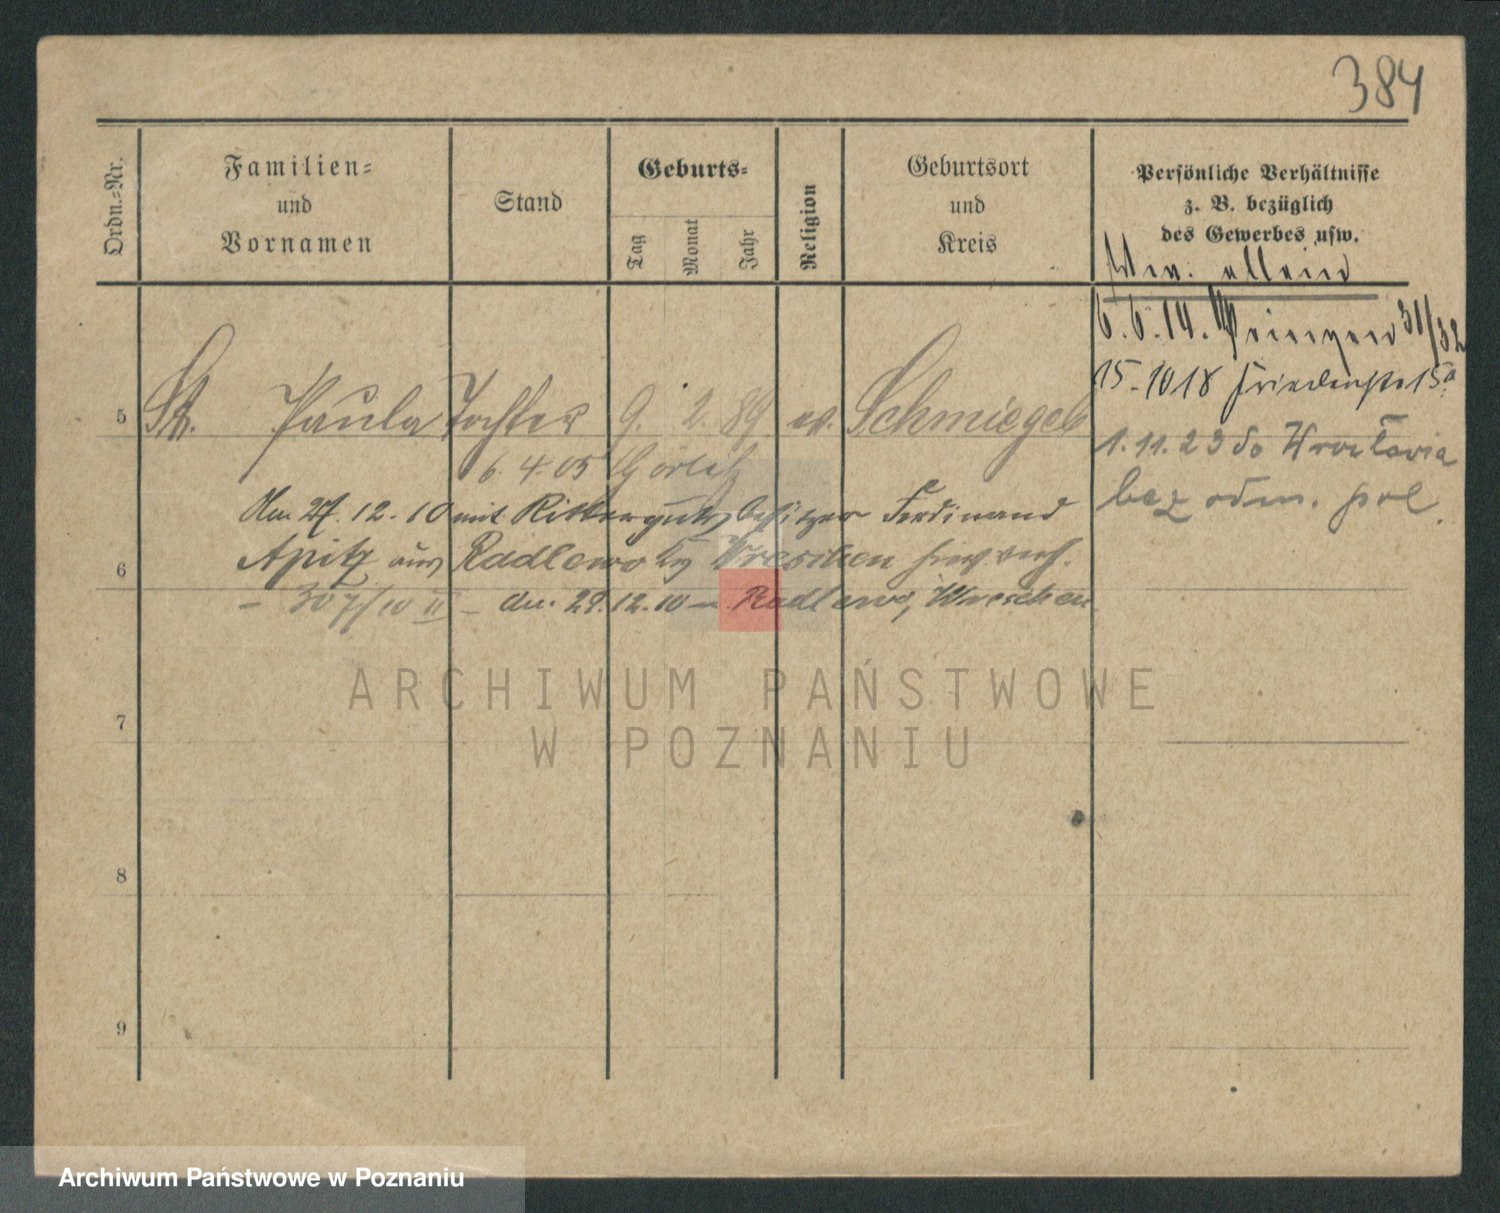 384
Ordn.-Nr.
Familien-
und
Vornamen
Stand
Geburts-
Tag
Monat
Jahr
Religion
Geburtsort
und
Kreis
Persönliche Verhältnisse
z. B. bezüglich
des Gewerbes usw.
allein
6.6.14. 31/32
15.10 18 Friedenstr 15a
5 St. Paula Tochter 9. 2. 89 ev. Schmiegel
1.11.23 do Wrocławia
6. 4. 05 Görlitz
bez odm. pol.
Am 27. 12. 10 mit Rittergutsbesitzer Ferdinand
6 Apitz aus Radlewo Wreschen verh.
307/10 II – den 29.12.10 – Radlewo, Wreschen
7
8
9
ARCHIWUM PAŃSTWOWE
W POZNANIU
Archiwum Państwowe w Poznaniu